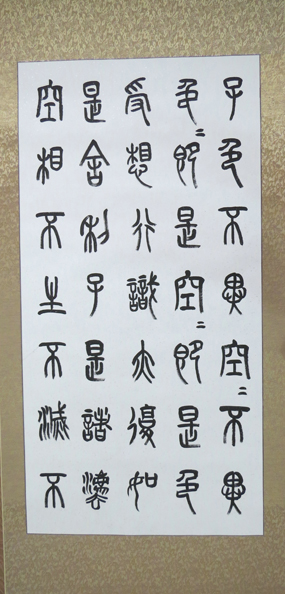 子色不異空〻不異
色〻即是空〻即是色
受想行識亦復如
是舍利子是諸灋
空相不生不滅不